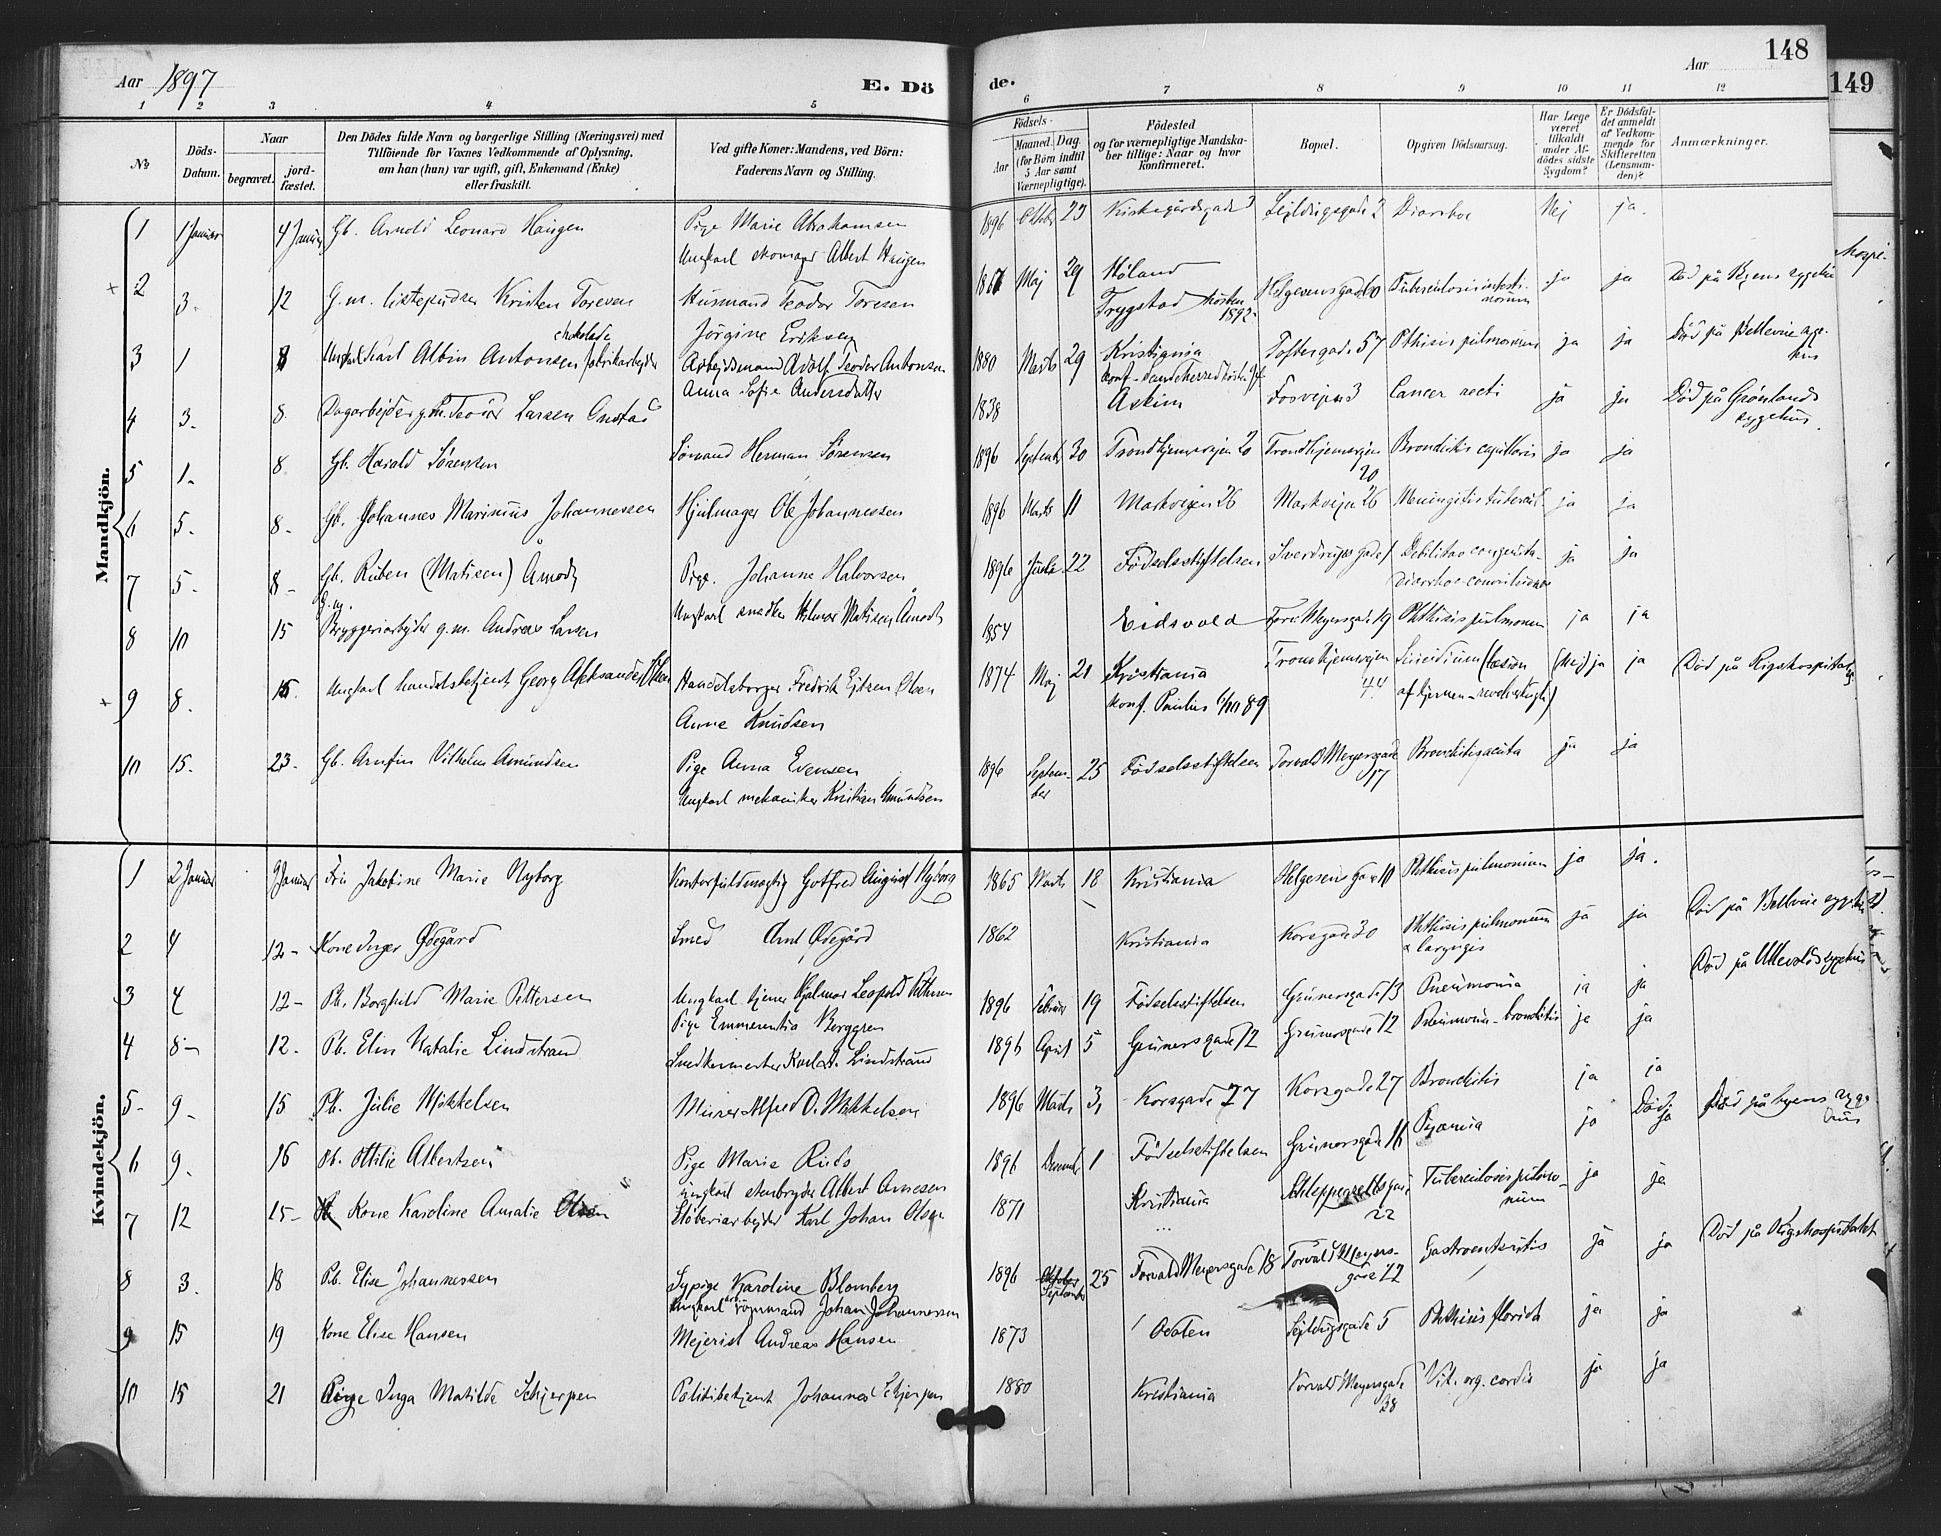 148
149
Aar 1897
E. Dö de.
Aar
1 2 3 4 5 6 7 8 9 10 11 12
No
Döds-Datum.
Naar
begravet.
jord-fæstet.
Den Dödes fulde Navn og borgerlige Stilling (Næringsvei) med
Tilföiende for Voxnes Vedkommende af Oplysning,
om han (hun) var ugift, gift, Enkemand (Enke)
eller fraskilt.
Ved gifte Koner: Mandens, ved Börn:
Faderens Navn og Stilling.
Födsels-
Aar
Maaned. Dag.
(for Börn indtil
5 Aar samt
Værnepligtige).
Födested
og for værnepligtige Mandska-
ber tillige: Naar og hvor
konfirmeret.
Bopæl.
Opgiven Dödsaarsag.
Har Læge
været
tilkaldt
under Af-
dödes sidste
Sygdom?
Er Dödsfal-
det anmeldt
af Vedkom-
mende for
Skifteretten
(Lensman-
den)?
Anmærkninger.
Mandkjön.
1 1 Januar 4 Januar Gb. Arnold Leonard Haugen Pige Marie Abrahamsen 1896 Oktober 23 Kirkegårdsgade Sejldugsgade 2 Diarrhoe Nej ja.
Ungkarl skomager Albert Haugen
2 3. 12 G.m. listepudser Kristen Toresen Husmand Teodor Toresen Maj 29 Høland Helgesensgade Tuberculosis intesti- ja ja Död på Byens sygehus
Jörgine Eriksen Trygstad 1892. norum
chokolade
3 1 8 Ungkarl Karl Albin Antonsen fabrikarbejder Arbejdsmand Adolf Teodor Antonsen 1880 Marts 29 Kristiania Toftesgade 57 Phthisis pulmonum ja ja Död på Bellevue syge-
hus
Anna Sofie Andersdatter
4 3. 8. Dagarbejder g.m. Teodor Larsen Onstad 1838 Askim Fosvejen 3 Cancer recti ja ja Död på Grønlands
sygehus.
5 1. 8. Gb. Harald Sörensen Sömand Herman Sörensen 1896 September 30 Trondhjemsvejen 20 Trondhjemsvejen Bronchitis capillaris ja ja
20
6 5. 8. Gb. Johannes Marinius Johannessen Hjulmager Ole Johannessen 1896 Marts 11 Markvejen 26 Markvejen 26 Meningitis tubercul. ja ja
7 5. 8. Gb. Ruben (Matisen) Åmodt Pige. Johanne Halvorsen 1896 22 Födselsstiftelsen Sverdrupsgade 1 Debilitas congenita ja ja
Ungkarl snedker Hilmar Matisen Åmodt
8 10 15 Bryggeriarbejder g.m. Andreas Larsen 1854 Eidsvold Torv. Meyersgade 19 Phthisis pulmonum ja ja
9 8. 15 Ungkarl handelsbetjent Georg Aleksander Olsen Handelsborger Fredrik Ejlsen Olsen 1874 Maj 21 Kristiania Trondhjemsvejen Suicidium (læsion (Nej) ja ja Död på Rigshospitalet
Anne Knudsen konf. Paulus 89 44 af hjernen - revolverkugle)
10 15. 23. Gb. Arnfin Vilhelm Amundsen Pige Anna Evensen 1896 Septem- 25 Födselsstiftelsen Torvald Meyersgade Bronchitis acuta ja ja
Ungkarl mekaniker Kristian Amundsen ber 17
Kvindekjön.
1 2 Januar 9 Januar Fru Jakobine Marie Nyborg Kontorfuldmægtig Gotfred August Nyborg 1865 Marts 18 Kristiania Helgesens Gade 10 Phthisis pulmonum ja ja.
2 4 12 - Kone Inger Ødegård Smed Arnt Ødegård 1862 Kristiania Korsgade 30 Phthisis pulmonum ja ja Död på Bellevue sygehus
& laryngis
3 4 12 - Pb. Borghild Marie Pettersen Ungkarl tjener Hjalmar Leopold Pettersen 1896 Februar 19 Födselsstiftelsen Grünersgade 13 Pneumonia ja ja Död på Ullevolds sygehus
Pige Emmerentia Berggren
4 8 - 12. Pb. Elin Natalie Lindstrand Snedkermester Karl A. Lindstrand 1896 April 5 Grünersgade 12 Grünersgade 12 Pneumonia - bronchitis ja ja
5 - 9 - 15 Pb. Julie Mikkelsen Murer Alfred O. Mikkelsen 1896 Marts 3, Korsgade 27 Korsgade 27 Bronchitis ja ja
6 9. 16 Pb. Ottilie Albertsen Pige Marie Ruds 1896 Decemb. 1 Födselsstiftelsen Grünersgade 16 Pyæmia ja ja Död på byens syge-
hus
Ungkarl stenbryder Albert Arnesen
7 12 15 - Kone Karoline Amalie Olsen Støberiarbejder Karl Johan Olsen 1871 Kristiania Schleppegrellsgade Tuberculosis pulmo- ja ja
22 num
8 3. 18 Pb. Elise Johannessen Sypige Karoline Blomberg 1896 September 25 Torvald Meyersgade 18 Torvald Meyers- Gastroenteritis ja ja Död på Rigshospitalet
Ungkarl sömmand Johan Johannessen gade 22
9 15 19 Kone Elise Hansen Mejerist Andreas Hansen 1873 Odalen Sejldugsgade 5 Phthisis florida ja ja
10 15 21 Pige Inga Matilde Schjerpen Politibetjent Johannes Schjerpen 1880 Kristiania Torvald Meyersgade Vit. org. cordis ja ja
38